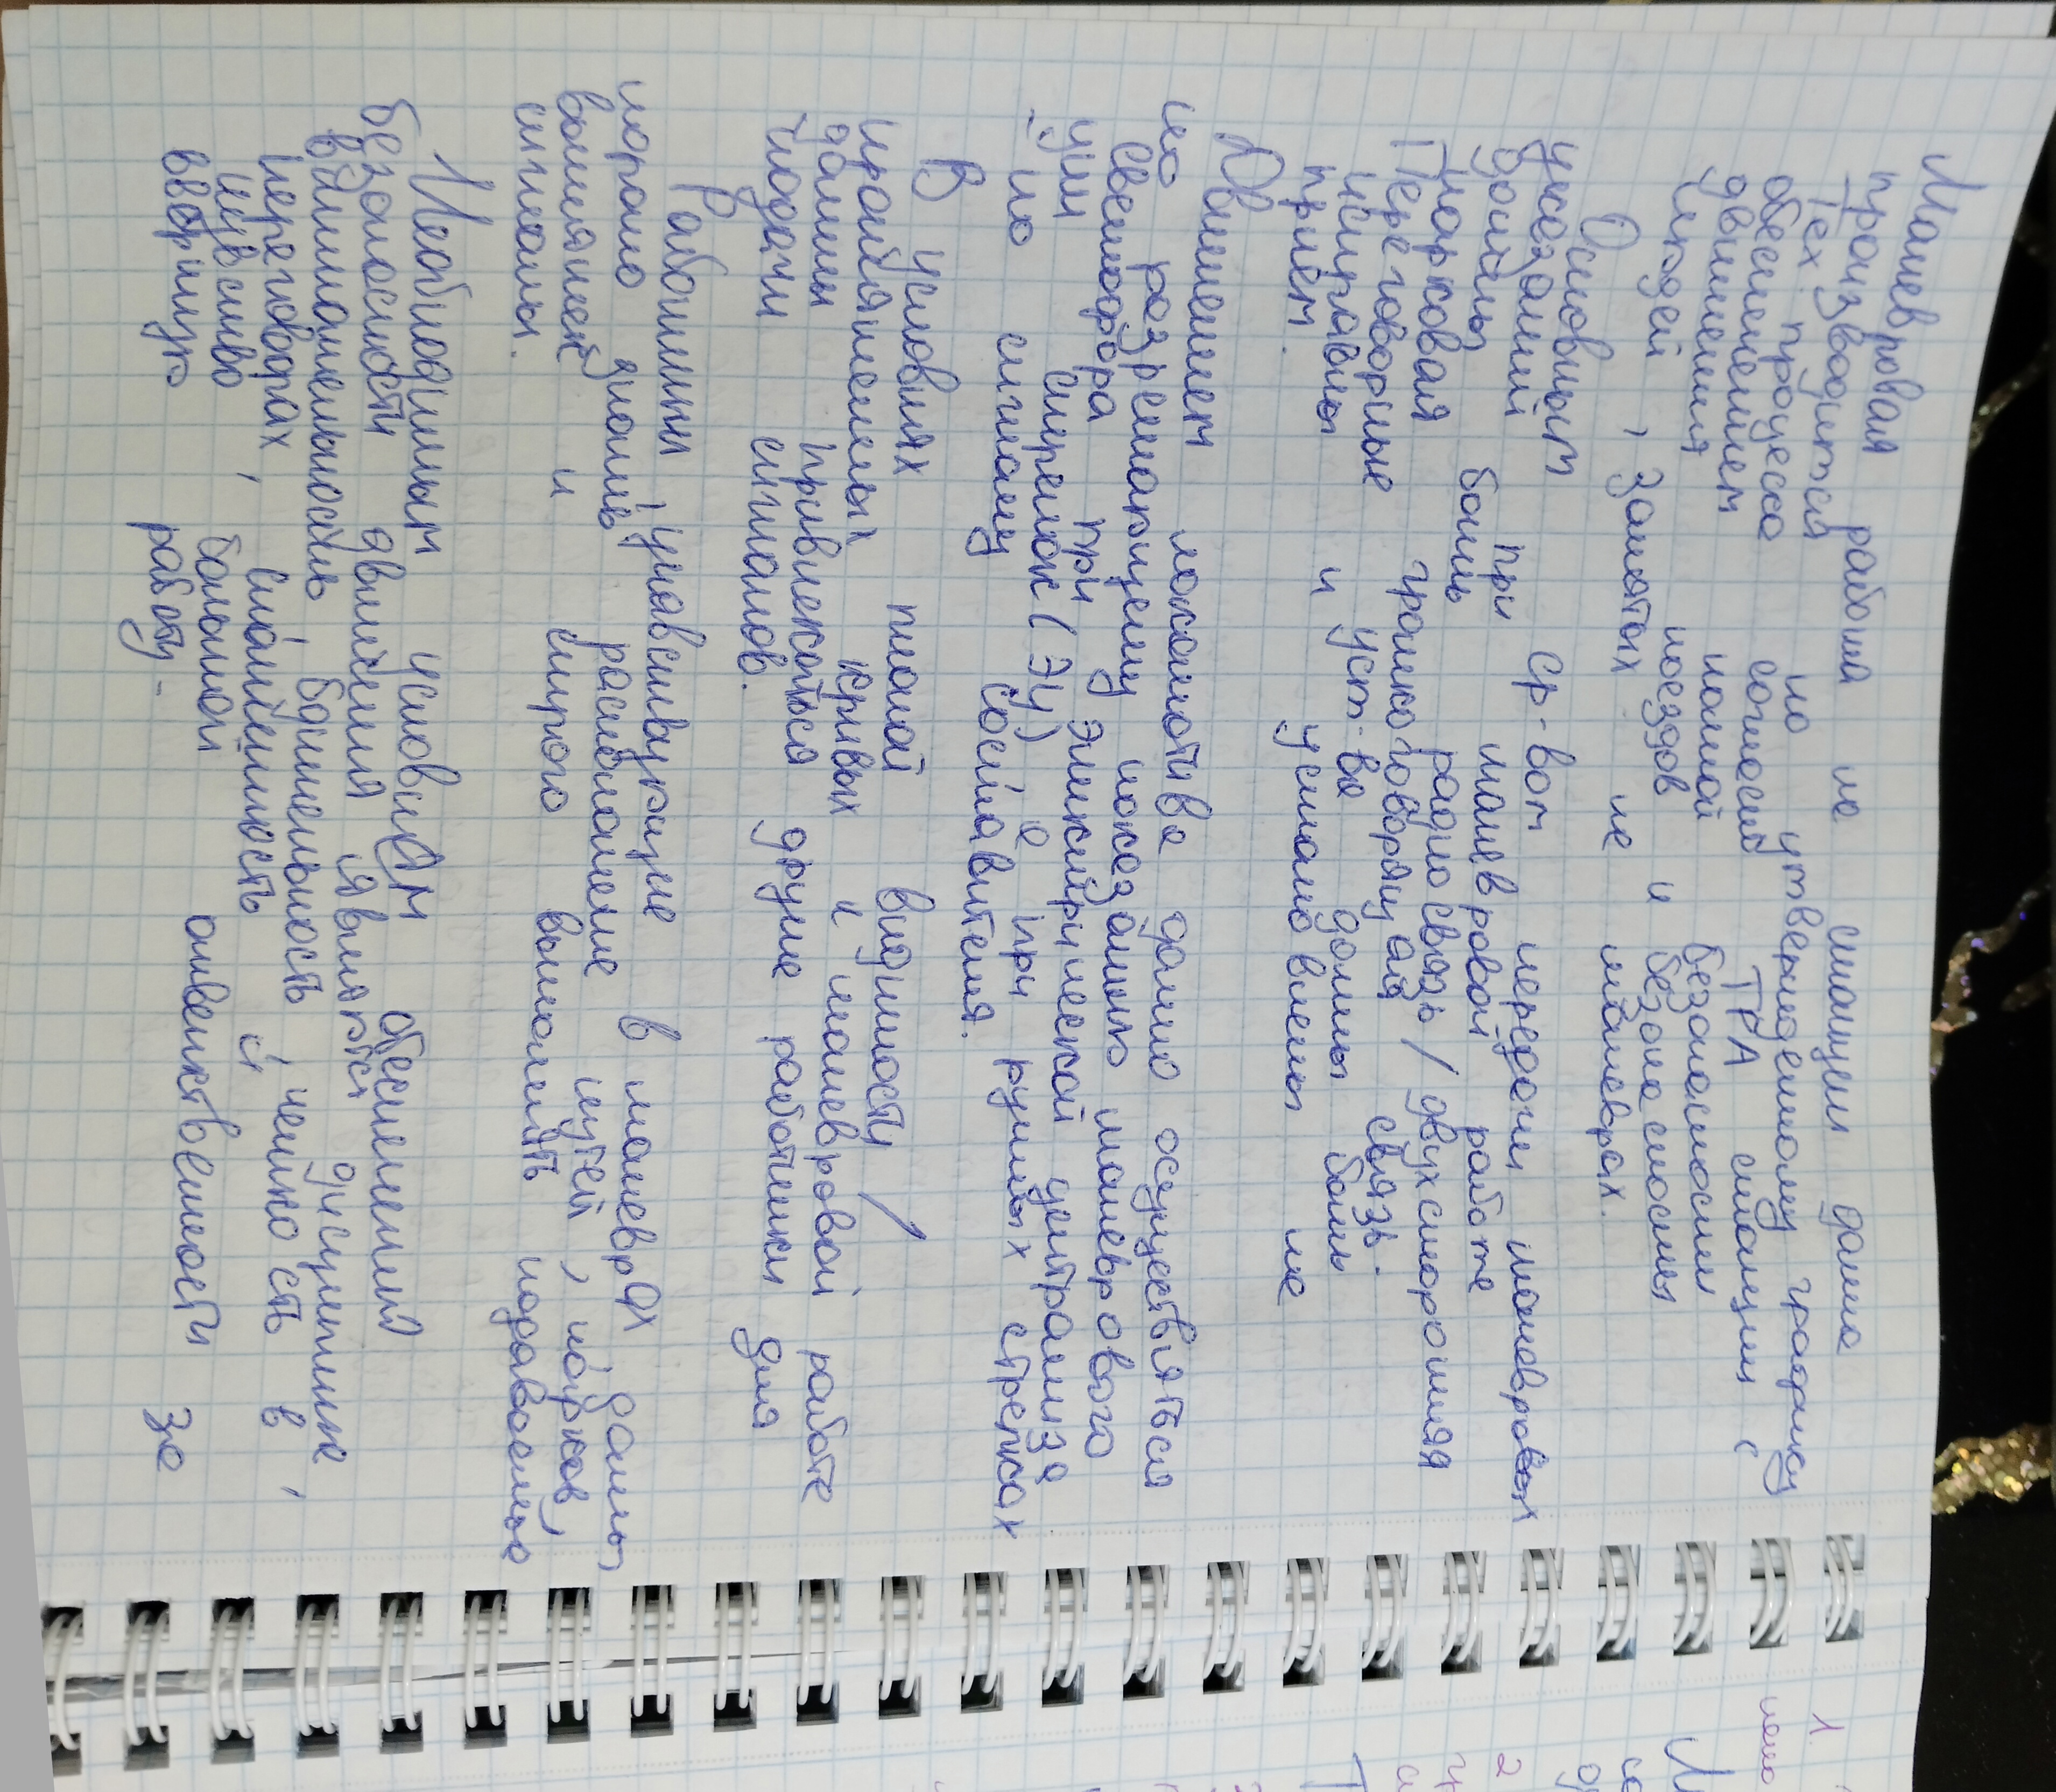 Маневровая работа на станции должна
производится по утвержденному графику
Тех. процесса согласно ТРА станции, с
обеспечением полной безопасности
движения поездов и безопасности
людей, занятых на маневрах.
Основным ср-вом передачи маневровых
указаний при маневровой работе
должна быть радиосвязь / двухсторонняя
парковая громкоговорящая связь.
Переговорные уст-ва должны быть
исправны и установлены на
прием.
Движением локомотива должно осуществляться
по разрешающему показанию маневрового
светофора при электрической централиза
ции стрелок (ЭЦ) а при ручных стрелках
- по сигналу составителя.
В условиях плохой видимости /
прибли кривых и маневровой работе
должны привлекаться другие работники для
подачи сигналов.
Работники участвующие в маневрах должны
хорошо знать расположение путей, парков,
и строго выполнять подаваемые
сигналы.
Необходимым условием обеспечения
безопасности движения являются
внимательность, бдительность, дисциплине,
переговорах, слаженность и четкость в
чувство большой ответственности за
работу.